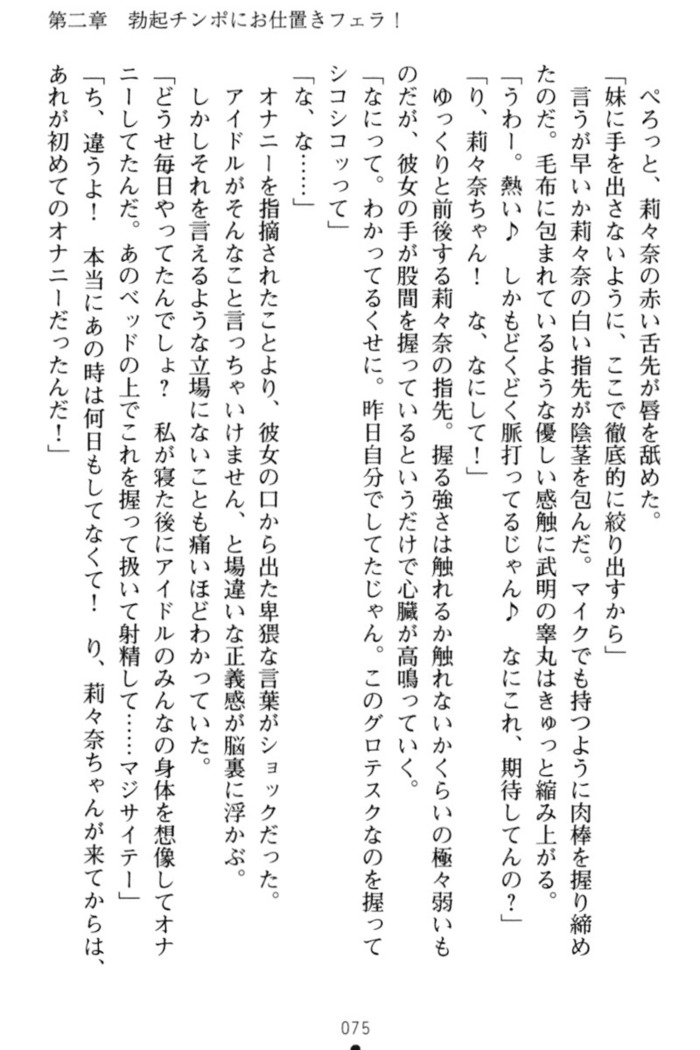 第二章　勃起チンポにお仕置きフェラ！
ぺろっと、莉々奈の赤い舌先が唇を舐めた。
「妹に手を出さないように、ここで徹底的に絞り出すから」
言うが早いか莉々奈の白い指先が陰茎を包んだ。マイクでも持つように肉棒を握り締め
たのだ。毛布に包まれているような優しい感触に武明の睾丸はきゅっと縮み上がる。
「うわー。熱い♪　しかもどくどく脈打ってるじゃん♪　なにこれ、期待してんの？」
「り、莉々奈ちゃん！　な、なにして！」
ゆっくりと前後する莉々奈の指先。握る強さは触れるか触れないかくらいの極々弱いも
のだが、彼女の手が股間を握っているというだけで心臓が高鳴っていく。
「なにって。わかってるくせに。昨日自分でしてたじゃん。このグロテスクなのを握って
シコシコッって」
「な、な……」
オナニーを指摘されたことより、彼女の口から出た卑猥な言葉がショックだった。
アイドルがそんなこと言っちゃいけません、と場違いな正義感が脳裏に浮かぶ。
しかしそれを言えるような立場にないことも痛いほどわかっていた。
「どうせ毎日やってたんでしょ？　私が寝た後にアイドルのみんなの身体を想像してオナ
ニーしてたんだ。あのベッドの上でこれを握って扱いて射精して……マジサイテー」
「ち、違うよ！　本当にあの時は何日もしてなくて！　り、莉々奈ちゃんが来てからは、
あれが初めてのオナニーだったんだ！」
075